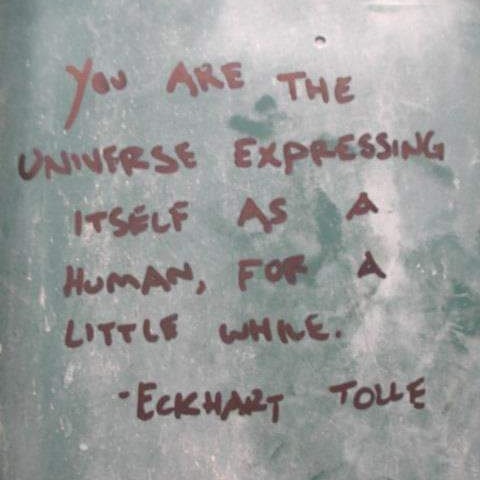 YOU ARE THE
UNIVERSE EXPRESSING
ITSELF AS A
HUMAN, FOR A
LITTLE WHILE.
-ECKHART TOLLE